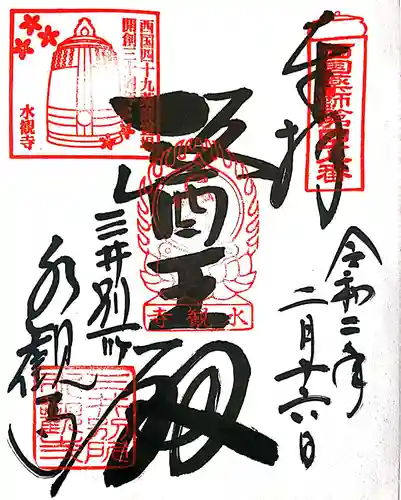 奉拝
令和二年
二月十六日
醫王殿
三井別所
水観寺
西国四十九薬師霊場
開創三十
水観寺
水観寺